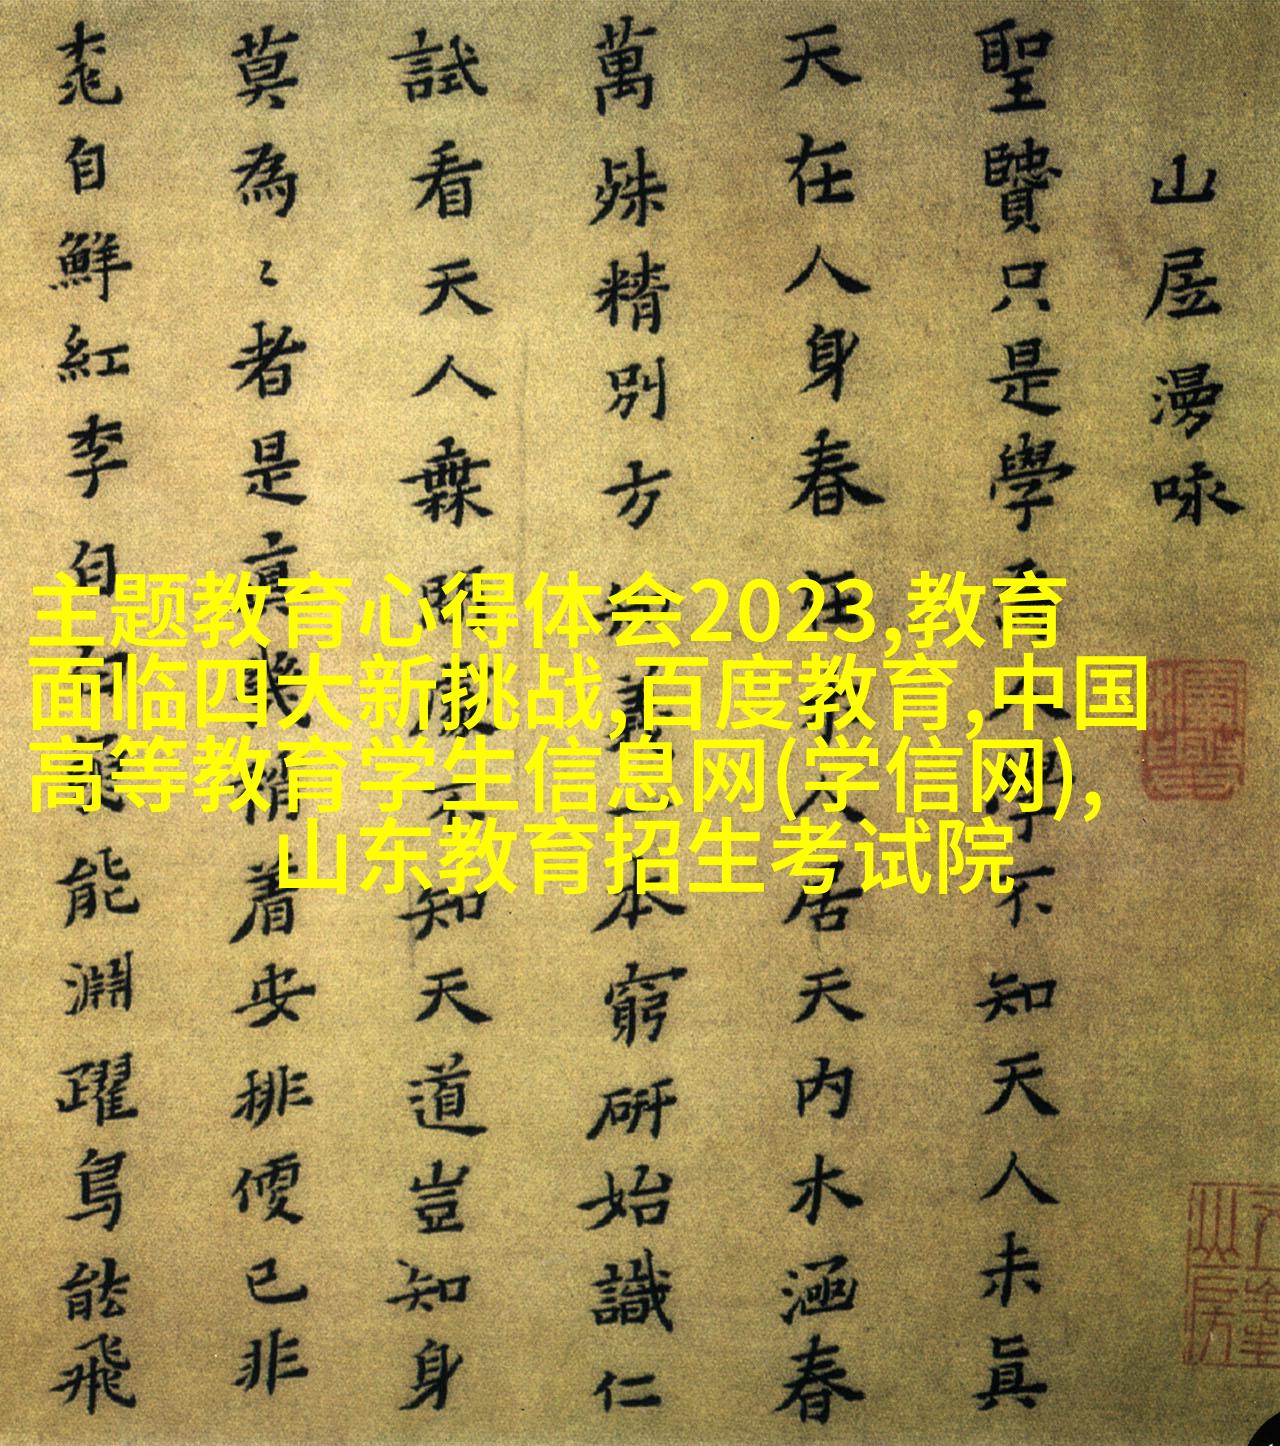 山居漫咏
聖贒只是學天人學不知天人未眞
天在人身春在木人居天內木涵春
萬殊精別方知義一本窮研始識仁
試看天人無間處不知天道豈知身
莫為〻者是真幾稍着安排便已非
桃自鮮紅李自白魚能淵躍鳥能飛
主题教育心得体会2023,教育
面临四大新挑战,百度教育,中国
高等教育学生信息网(学信网),
山东教育招生考试院